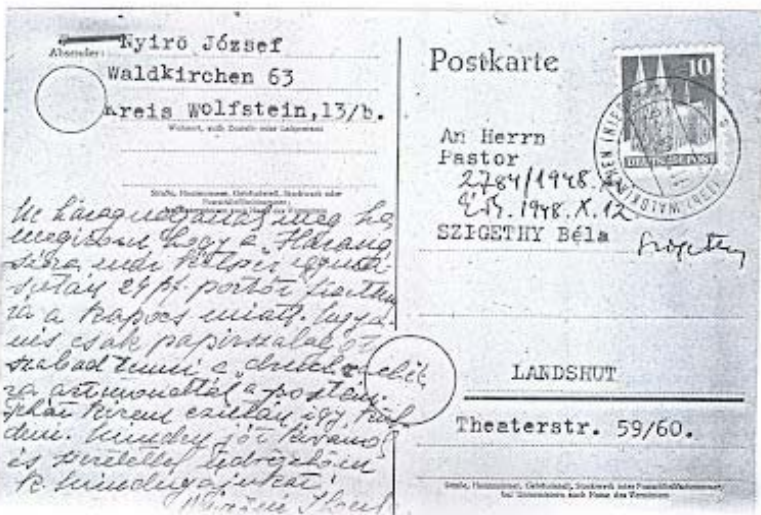 Absender: Nyirő József
Waldkirchen 63
Kreis Wolfstein,13/b.
Wohnort, auch Zustell- oder Leitpostamt
Straße, Hausnummer, Gebäudeteil, Stockwerk oder Postschließfachnummer;
Ne haragudjanak meg ha
megirom hogy a Harang
szóra már kétszer egymás
után 24 pf. portót fizettem
rá a kapocs miatt. Ugya-
nis csak papirszalagot
szabad tenni a
ra azt mondták a postán.
kérem ezután így kül-
deni. Minden jót kivánok
és szeretettel üdvözlöm
k. mindnyájukat!
Postkarte
10
DEUTSCHE POST
An Herrn
Pastor
2784/1948.
1948.X.12
SZIGETHY Béla
Szigethy
LANDSHUT
Theaterstr. 59/60.
Straße, Hausnummer, Gebäudeteil, Stockwerk oder Postschließfachnummer;
bei Untermietern auch Name des Vermieters